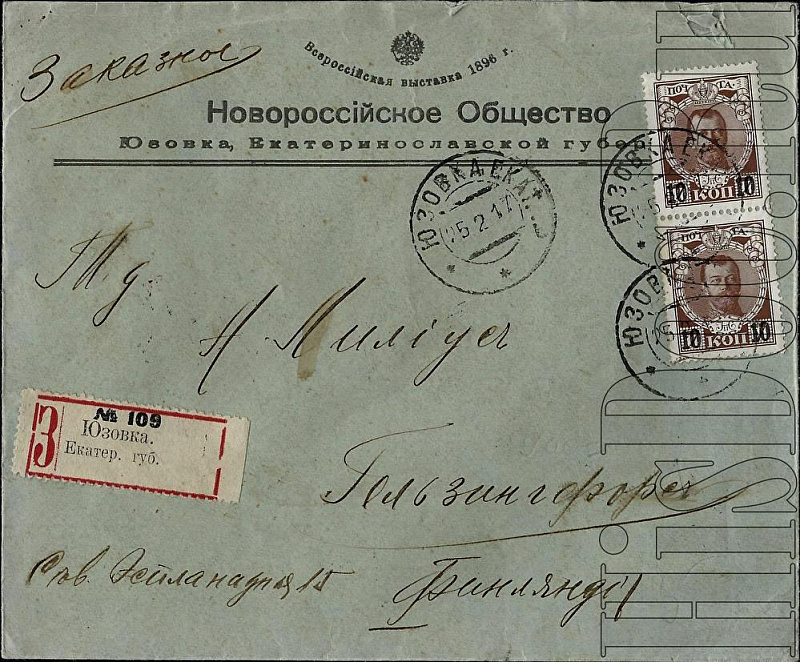 Заказное
Всероссійская выставка 1896 г.
Новороссійское Общество
Юзовка, Екатеринославской губер
ПОЧТА
10 КОП 10
ПОЧТА
10 КОП 10
ЮЗОВКА ЕКАТ.
25.2.17
ЮЗОВКА ЕК
ЮЗОВКА
25
Г
Н Миліусъ
З
№ 109
Юзовка.
Екатер. губ.
Гельзингфорсъ
Эспланадная 15
Финляндія